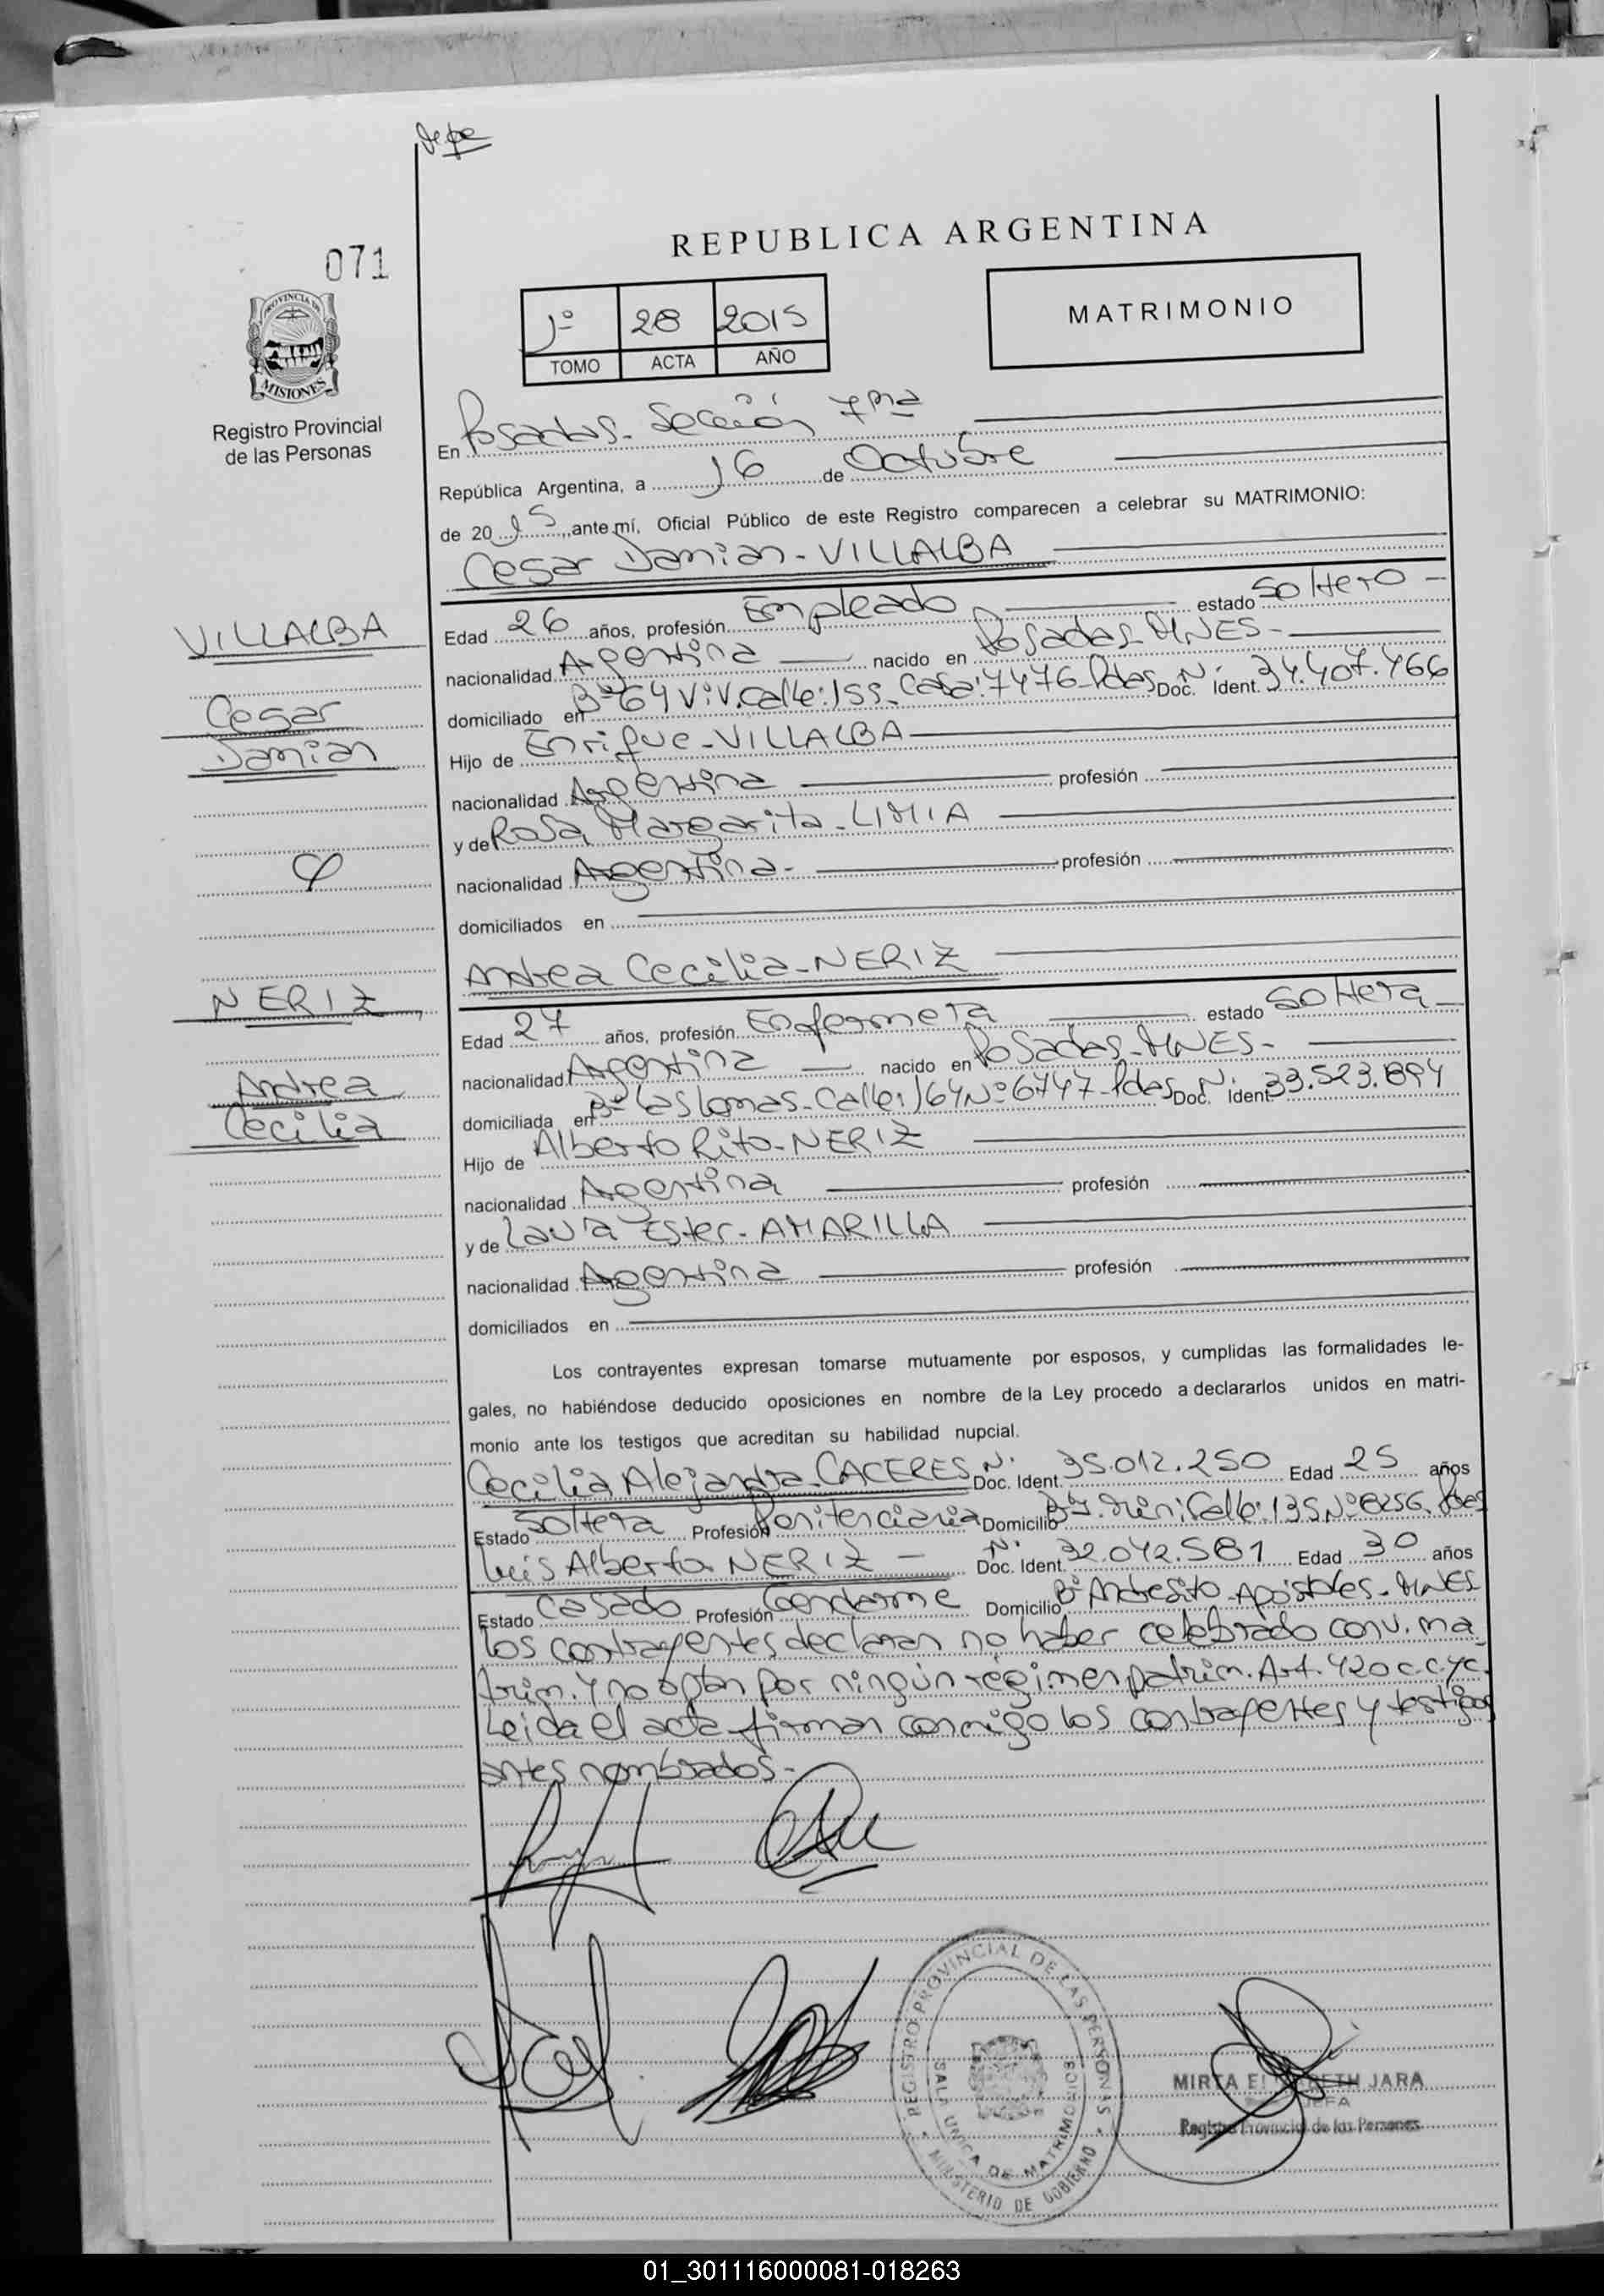 071
REPUBLICA ARGENTINA
1º 28 2015
TOMO ACTA AÑO
MATRIMONIO
PROVINCIA DE
MISIONES
Registro Provincial
de las Personas
En Posadas- Sección 7ma
República Argentina, a 16 de Octubre
de 2015, ante mí, Oficial Público de este Registro comparecen a celebrar su MATRIMONIO:
Cesar Damian - VILLALBA
VILLALBA
Cesar
Damian
Edad 26 años, profesión Empleado estado Soltero -
nacionalidad Argentina nacido en Posadas-MNES-
domiciliado en Bº 64 Viv. calle: 155- Casa: 7476- Pdas Doc. Ident. Nº 34.407.466
Hijo de Enrique - VILLALBA
nacionalidad Argentina profesión
y de Rosa Margarita - LIMIA
nacionalidad Argentina- profesión
domiciliados en
Andrea Cecilia - NERIZ
NERIZ,
Andrea
Cecilia
Edad 27 años, profesión Enfermera estado Soltera
nacionalidad Argentina nacido en Posadas-MNES-
domiciliada en Bº Las Lomas- Calle: 164 Nº 6747- Pdas Doc. Ident. Nº 33.523.894
Hijo de Alberto Rito - NERIZ
nacionalidad Argentina profesión
y de Laura Ester - AMARILLA
nacionalidad Argentina profesión
domiciliados en
Los contrayentes expresan tomarse mutuamente por esposos, y cumplidas las formalidades le-
gales, no habiéndose deducido oposiciones en nombre de la Ley procedo a declararlos unidos en matri-
monio ante los testigos que acreditan su habilidad nupcial.
Cecilia Alejandra - CACERES Doc. Ident. Nº 35.012.250 Edad 25 años
Estado Soltera Profesión Penitenciaria Domicilio Calle: 135 Nº 8256- Pdas
Luis Alberto - NERIZ - Doc. Ident. Nº 32.042.581 Edad 30 años
Estado Casado Profesión Gendarme Domicilio Bº Andresito - Apóstoles - MNES
Los contrayentes declaran no haber celebrado conv. ma
trim. Y no optan por ningún régimen patrim. Art. 420 c.c.yc.
Leida el acta firman conmigo los contrayentes y testigos
antes nombrados.-
REGISTRO PROVINCIAL DE LAS PERSONAS
SALA UNICA DE MATRIMONIOS
MINISTERIO DE GOBIERNO
MIRTA JARA
JEFA
Registro Provincial de las Personas
01_301116000081-018263